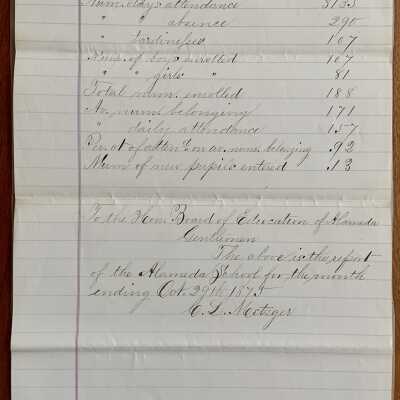 Num. days attendance 3133
" " absence 290
" tardinesses 107
Num. of boys enrolled 107
" " girls " 81
Total num. enrolled 188
Av. num. belonging 171
" daily attendance 157
Per. ct of atten. on av. num. belonging .92
Num of new pupils entered .13
To the Hon. Board of Education of Alameda
Gentlemen
The above is the report
of the Alameda School for the month
ending Oct. 29th 1875
C. L. Metzger